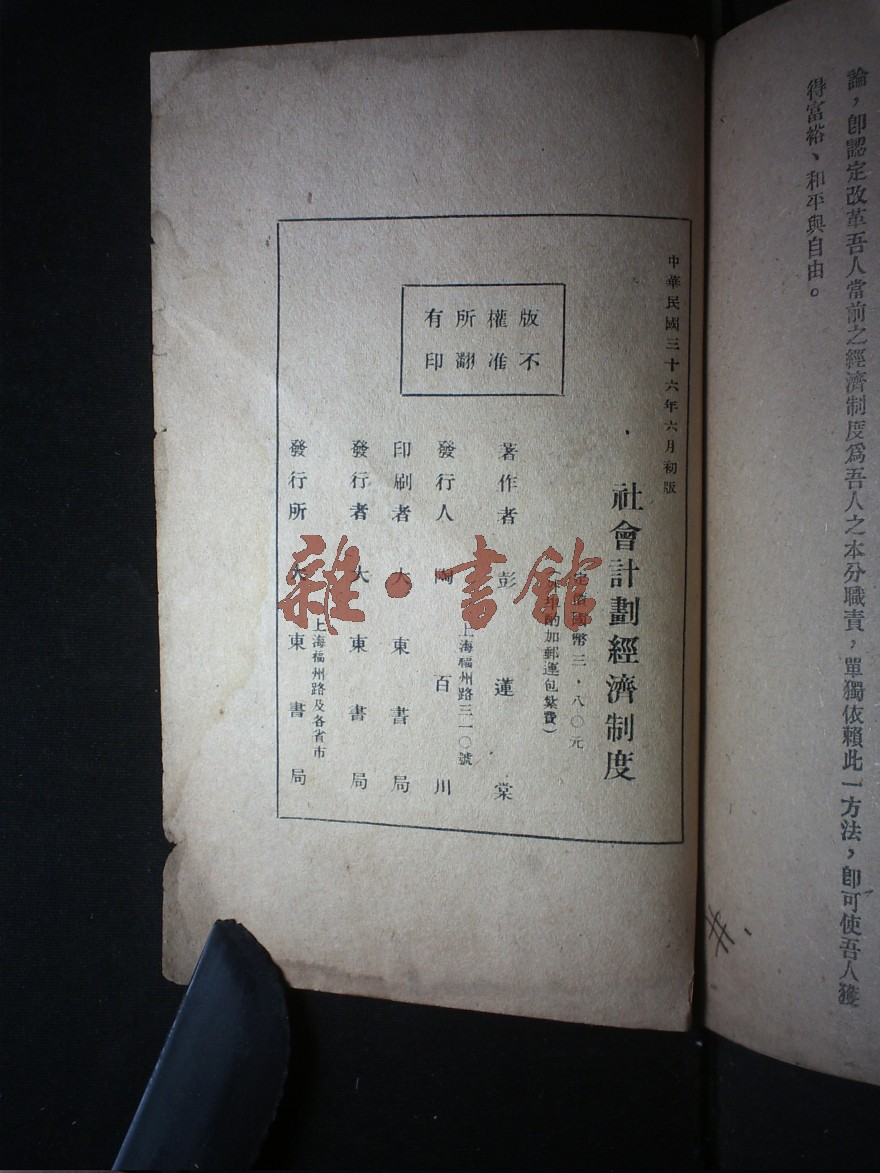 論，卽認定改革吾人當前之經濟制度爲吾人之本分職責，單獨依賴此一方法，卽可使吾人獲
得富裕、和平與自由。
中華民國三十六年六月初版
社會計劃經濟制度
定價國幣三·八〇元
印酌加郵運包紮費）
版權所有
不准翻印
著作者 彭蓮棠
發行人 陶百川
上海福州路三一〇號
印刷者 大東書局
發行者 大東書局
發行所 大東書局
上海福州路及各省市
雜·書館